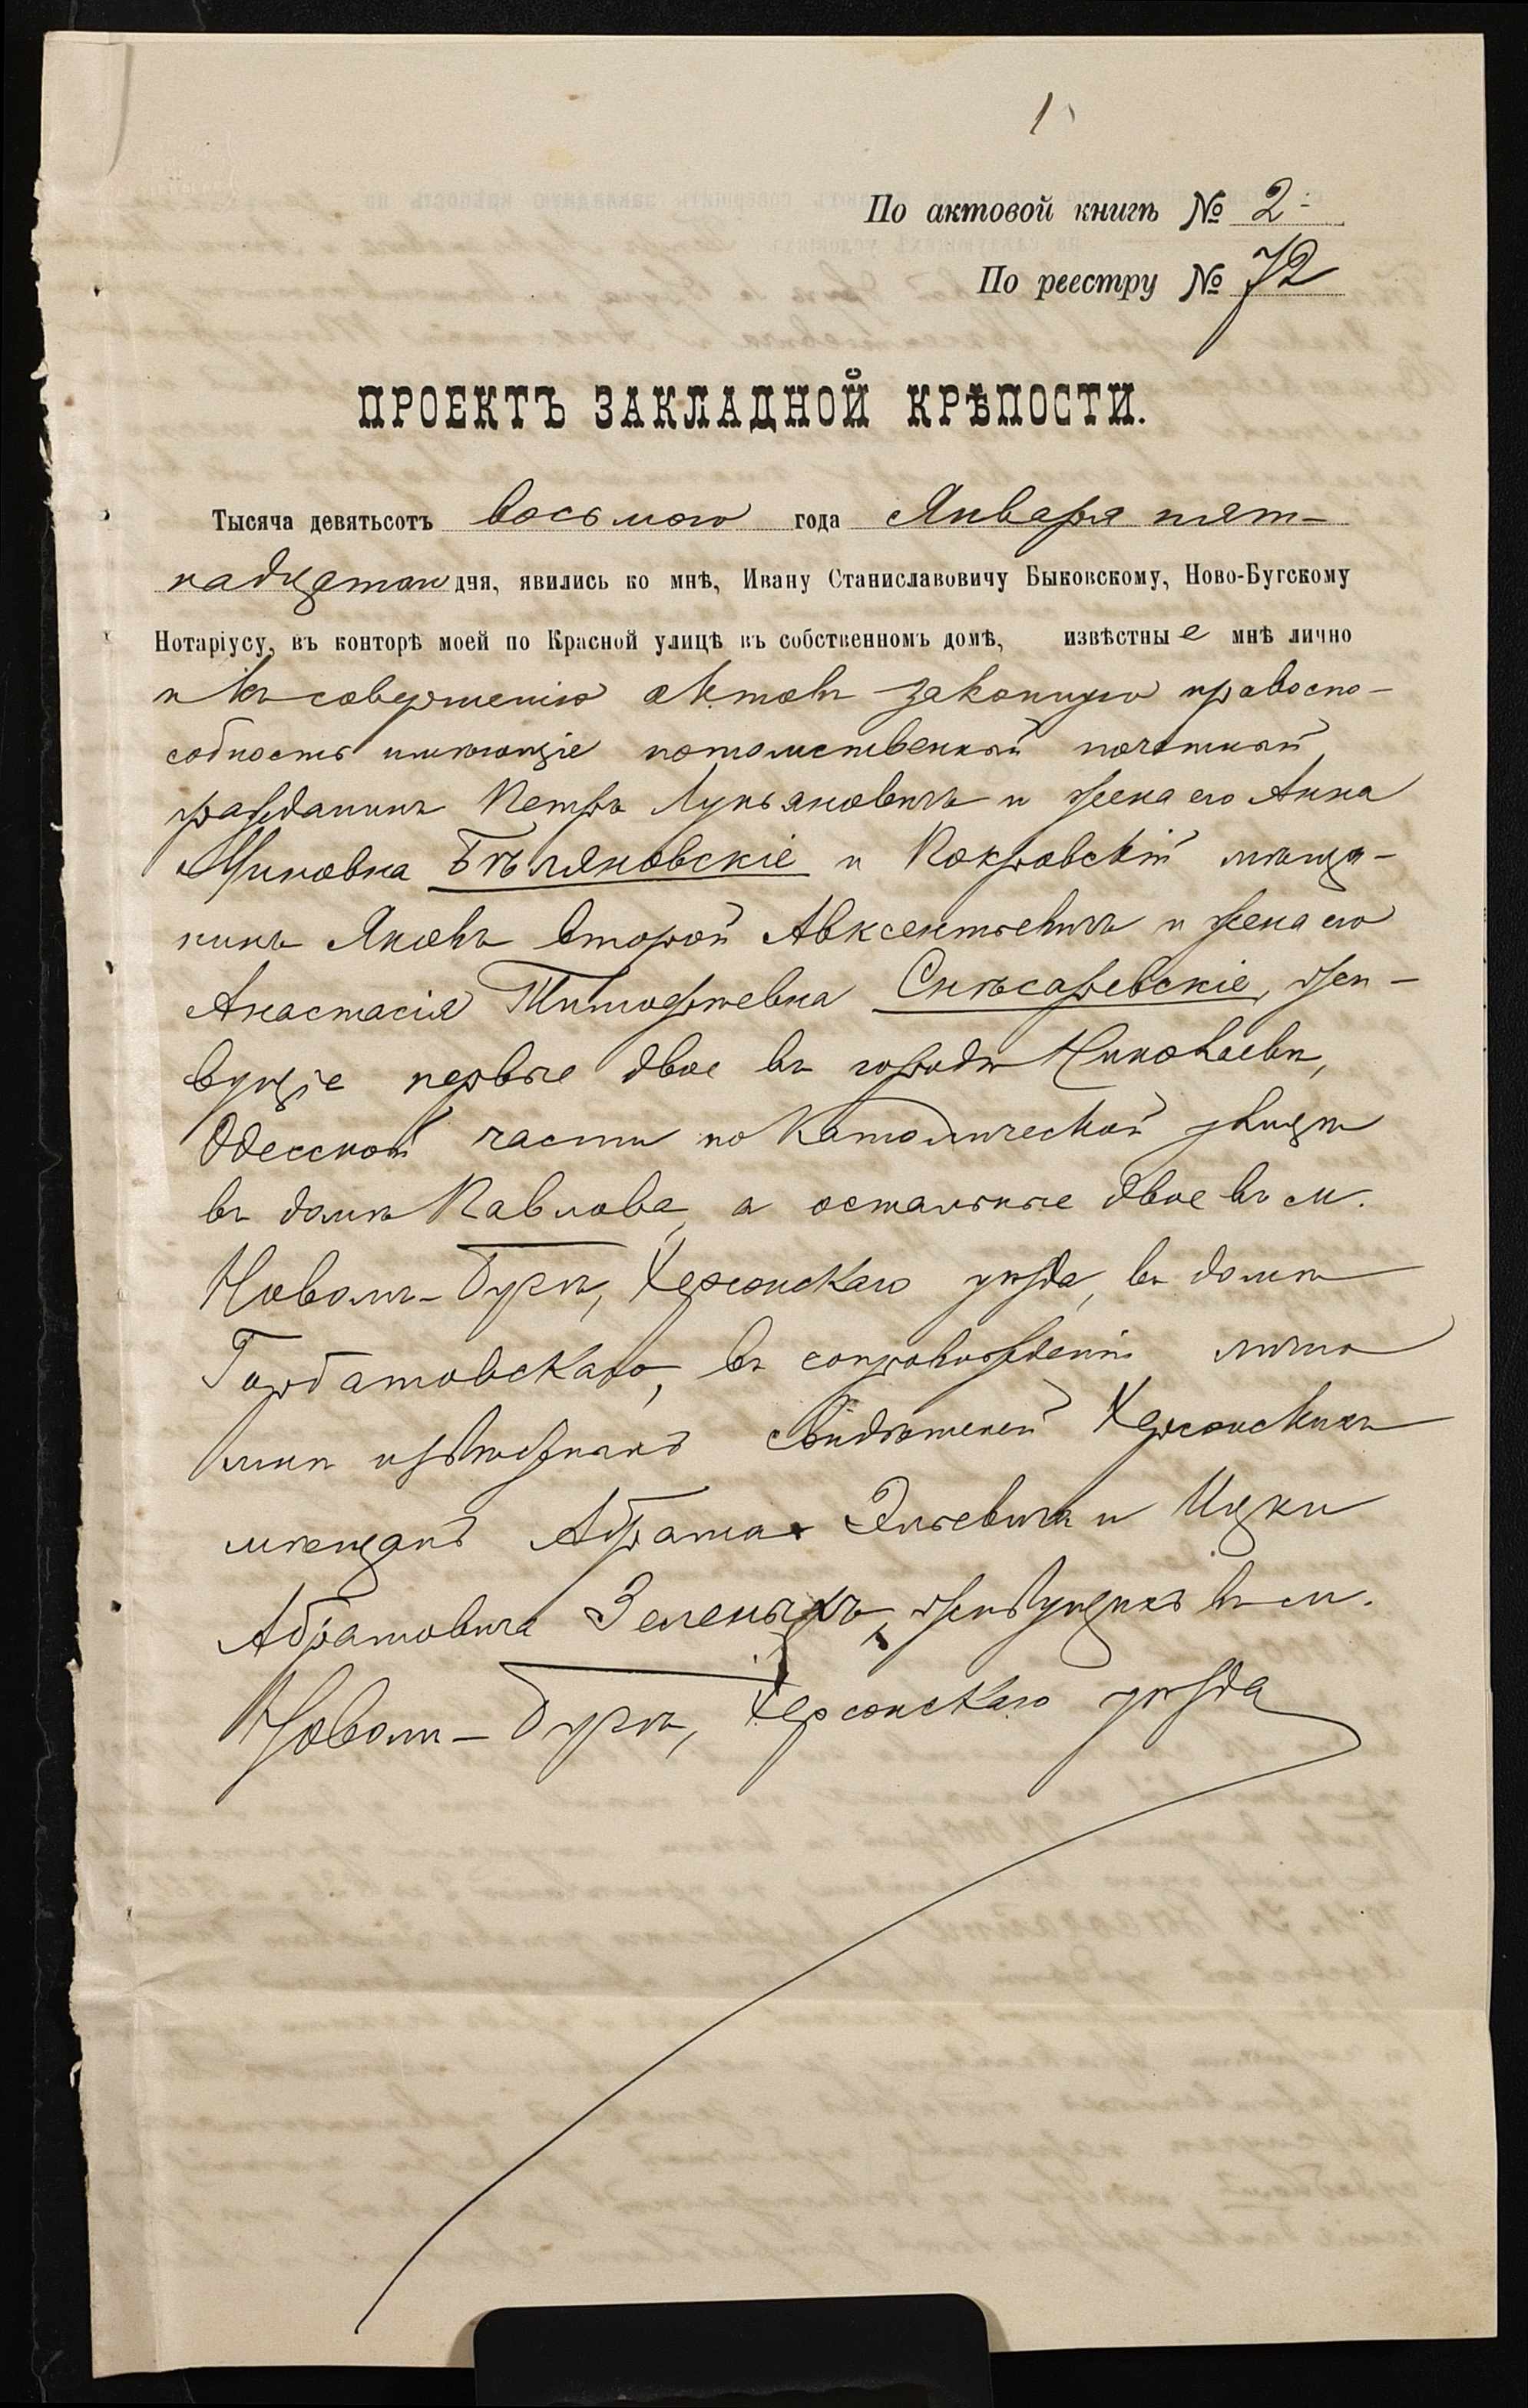 1
По актовой книгѣ № 2
По реестру № 72
ПРОЕКТЪ ЗАКЛАДНОЙ КРѢПОСТИ.
Тысяча девятьсотъ восьмого года Января пят-
надцатаго дня, явились ко мнѣ, Ивану Станиславовичу Быковскому, Ново-Бугскому
Нотаріусу, въ конторѣ моей по Красной улицѣ въ собственномъ домѣ, извѣстные мнѣ лично
и къ совершенію актовъ законную правоспо-
собность имѣющіе потомственный почетный
гражданинъ Петръ Лукьяновичъ и жена его Анна
Бѣляковскіе и Покровскій мѣща-
нинъ Яковъ второй Авксентьевичъ и жена его
Анастасія Тимофѣевна Снѣсаревскіе, жи-
вущіе первые двое въ городѣ Николаевѣ,
Одесской части по Католической улицѣ
въ домѣ Павлова, а остальные двое въ м.
Новомъ-Бугѣ, Херсонскаго уѣзда, въ домѣ
Горбатовскаго, въ сопровожденіи лично
мнѣ извѣстныхъ свидѣтелей Херсонскихъ
мѣщанъ Абрама Эльевича и Ицки
Абрамовича Зеленыхъ, живущихъ въ м.
Новомъ-Бугѣ, Херсонскаго уѣзда